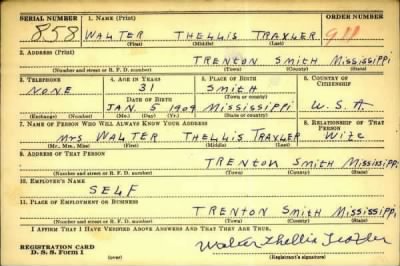 SERIAL NUMBER 1. NAME (Print) ORDER NUMBER
858 WALTER THELLIS TRAXLER
(First) (Middle) (Last)
2. ADDRESS (Print)
TRENTON SMITH MISSISSIPPI
(Number and street or R. F. D. number) (Town) (County) (State)
3. TELEPHONE 4. AGE IN YEARS 5. PLACE OF BIRTH 6. COUNTRY OF CITIZENSHIP
NONE 31 SMITH
DATE OF BIRTH (Town or county)
JAN 5 1909 MISSISSIPPI U.S.A
(Exchange) (Number) (Mo.) (Day) (Yr.) (State or country)
7. NAME OF PERSON WHO WILL ALWAYS KNOW YOUR ADDRESS 8. RELATIONSHIP OF THAT PERSON
MRS WALTER THELLIS TRAXLER WIFE
(Mr., Mrs., Miss) (First) (Middle) (Last)
9. ADDRESS OF THAT PERSON
TRENTON SMITH MISSISSIPPI
(Number and street or R. F. D. number) (Town) (County) (State)
10. EMPLOYER'S NAME
SELF
11. PLACE OF EMPLOYMENT OR BUSINESS
TRENTON SMITH MISSISSIPPI
(Number and street or R. F. D. number) (Town) (County) (State)
I AFFIRM THAT I HAVE VERIFIED ABOVE ANSWERS AND THAT THEY ARE TRUE.
REGISTRATION CARD
D. S. S. Form 1 (over) Walter Thellis Traxler
(Registrant's signature)